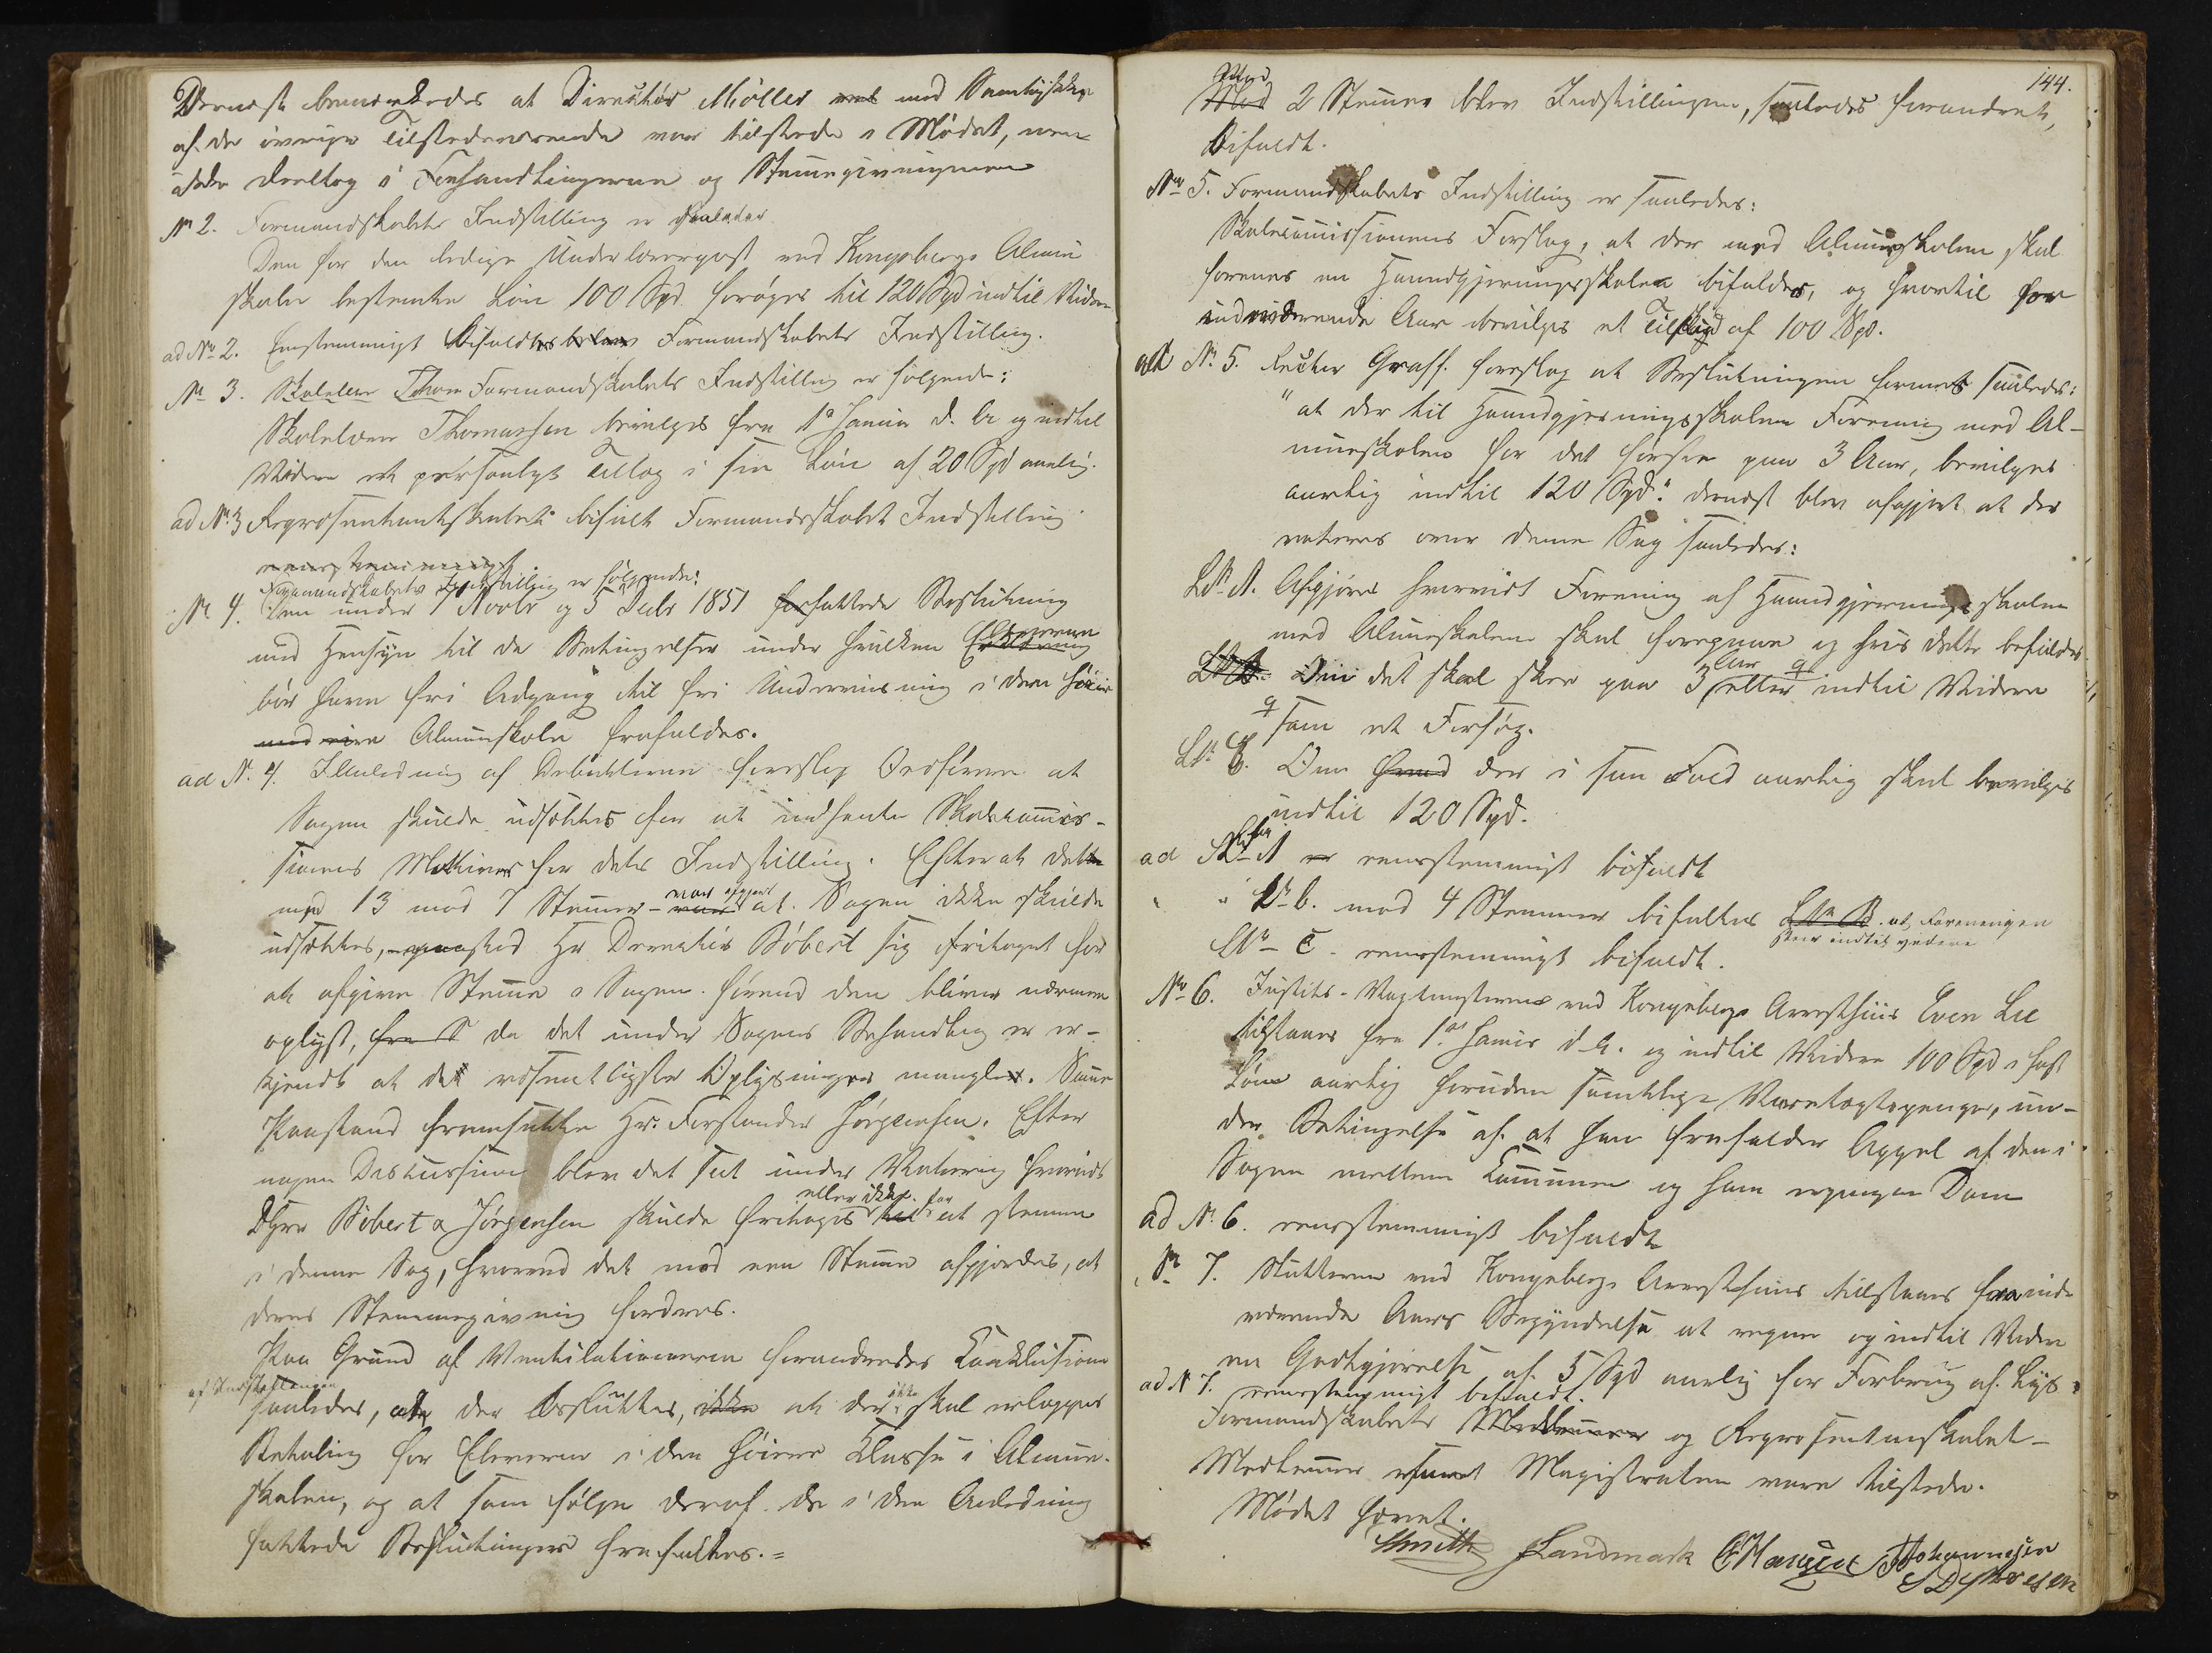 Dernæst bemærkedes at Directør Møller med Samtykke
af de øvrige Tilstedeværende var tilstede i Mødet, men
deeltog i Forhandlingerne og Stemmegivningen
No 2. Formandskabets Indstilling er saaledes
Den for den ledige Underlærerpost ved Kongsbergs Almue
skole bestemte Løn 100 Spd. forøges til 120 Spd indtil Videre
ad No 2. Eenstemmigt bifaldtes Formandskabets Indstilling.
No 3. Formandskabets Indstilling er følgende:
Skolelærer Thomassen bevilges fra 1ste Januar d. A. og indtil
Videre et personligt Tillæg i sin Løn af 20 Spd aarlig.
ad No 3 Repræsentantskabet bifaldt Formandskabets Indstilling
eenstemmigt
Formandskabets Indstilling er følgende:
No 4. Den under 7 Novbr og 5 Decbr 1851 fattede Beslutning
med Hensyn til de Betingelser under hvilken Eleverne
bør have fri Adgang til fri Underviisning i den høiere
Almueskole frafaldes.
ad No. 4. I Anledning af Debatterne foreslog Ordføreren at
Sagen skulde udsættes for at indhente Skolecommis-
sionens Motiver for dets Indstilling. Efterat dette
med 13 mod 7 Stemmer var afgjort at Sagen ikke skulde
udsættes, Hr Directør Bøbert sig fritaget for
at afgive Stemme i Sagenførend den bliver nærmere
oplyst, da det under Sagens Behandling er er-
kjendt at de væsentligste Oplysninger mangler. Samme
Paastand fremsatte Hr. Forstander Jørgensen. Efter
nogen Discussion blev det sat under Votering hvorvidt
DHrr Bøbert & Jørgensen skulde fritages eller ikke for at stemme
i denne Sag, hvorved det med een Stemme afgjordes, at
deres Stemmegivning fordres.
Paa Grund af Ventilationerne forandredes Conklusionen
af Indstillingen
saaledes, at der besluttes, at der ikke skal erlægges
Betaling for Eleverne i den høiere Klasse i Almue-
skolen, og at som Følge deraf de i den Anledning
fattede Beslutninger frafaldes.=
144.
Mod
2 Stemmer blev Indstillingen, saaledes forandret,
Bifaldt.
No 5. Formandskabets Indstilling er saaledes:
Skolecommissionens Forslag, at der med Almueskolen skal
forenes en Haandgjerningsskole bifaldes, og hvortil for
indeværende Aar bevilges et Tilskud af 100 Spd.
ad No. 5. Rector Graff. foreslog at Beslutningen formes saaledes:
"at der til Haandgjerningsskolens Forening med Al-
mueskolen for det første paa 3 Aar, bevilges
aarlig indtil 120 Spd." dernæst blev afgjort at der
voteres over denne Sag saaledes:
Ltr A. Afgjøres hvorvidt Forening af Haandgjerningsskolen
med Almueskolen skal foregaae og hvis dette bifaldes
Ltr B. Om det skal skee paa 3 Aar eller indtil Videre
som et Forsøg.
Ltr C. Om der i saa Fald aarlig skal bevilges
indtil 120 Spd.
ad Ltr A eenstemmigt bifaldt
" Ltr b. mod 4 Stemmer bifaldtes at Foreningen
skeer indtil videre
Ltr C. eenstemmigt bifaldt.
No 6. Justits-Vagtmesteren ved Kongsbergs Arresthuus Even Lie
tilstaaes fra 1ste Januar d. A. og indtil Videre 100 Spd i fast
Løn aarlig foruden samtlige Varetægtspenge, un-
der Betingelse af at han frafalder Appel af den i
Sagen mellem Communen og ham ergangne Dom
ad No. 6. eenstemmigt bifaldt
No 7. Slutteren ved Kongsbergs Arresthuus tilstaaes fra inde
værende Aars Begyndelse at regne og indtil Videre
en Godtgjørelse af 5 Spd aarlig for Forbrug af Lys
ad No 7. eenstemmigt bifaldt.
Formandskabets og Repræsentantskabet-
Medlemmer samt Magistraten vare tilstede.
Mødet hævet.
Smith Landmark CHansen Johannesen